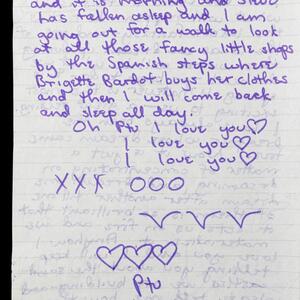 and it is morning and Steve
has fallen asleep and I am
going out for a walk to look
at all those fancy little shops
by the Spanish steps where
Brigette Bardot buys her clothes
and then I will come back
and sleep all day.
Oh Ptv I love you♡
I love you♡
I love you♡
XXX OOO
♡♡♡
Ptv